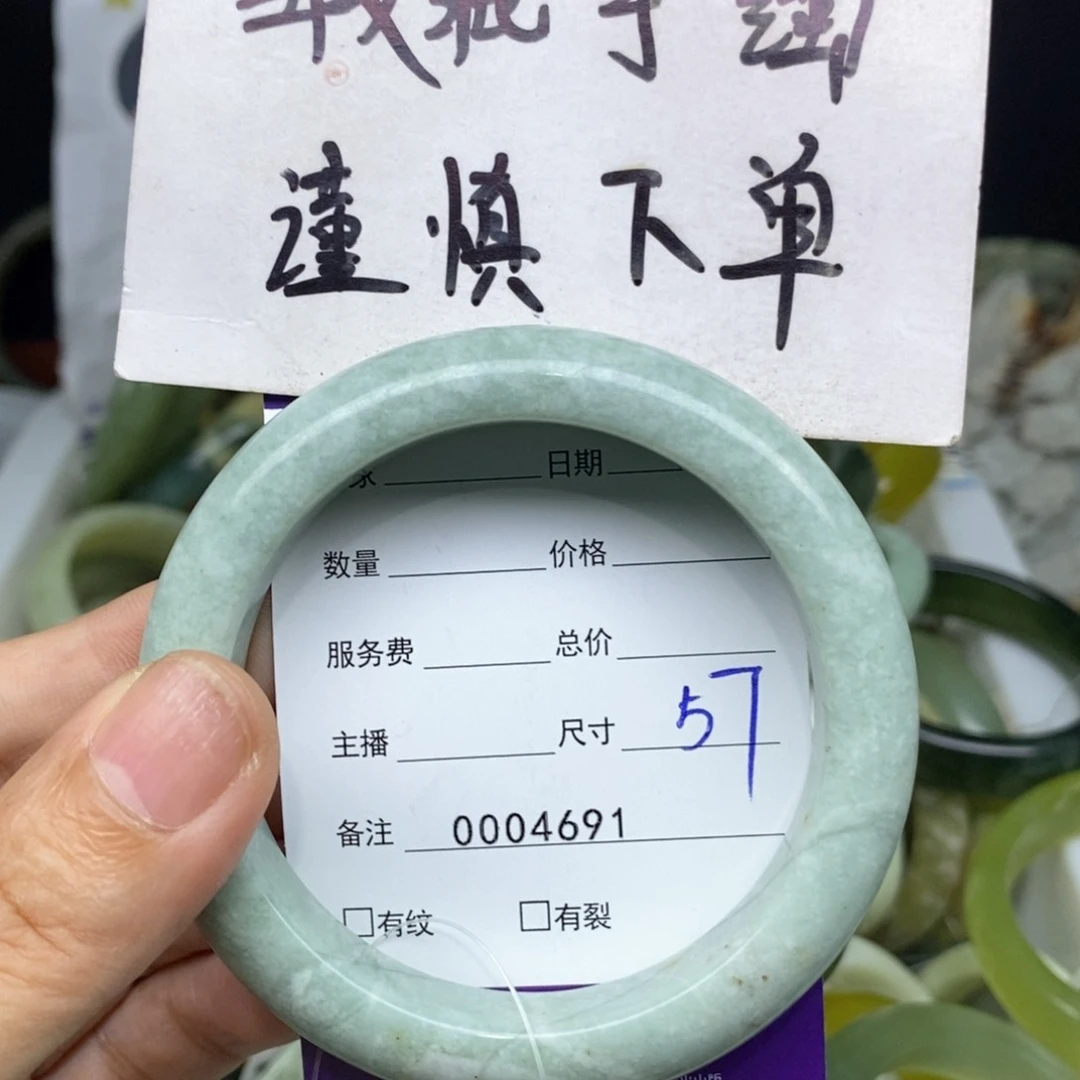 谨慎下单
日期
数量 价格
服务费 总价
主播 尺寸 57
备注 0004691
□有纹 □有裂